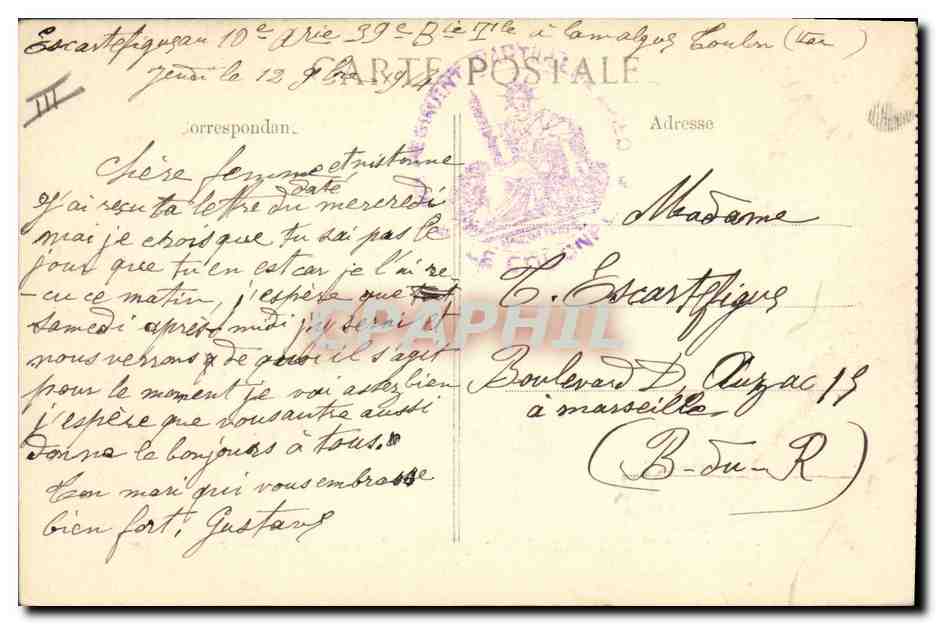 Escartefigue au 10e Arie 39e Bie Tle à Lamalgue Toulon (Var)
CARTE POSTALE
Jeudi le 12 9bre 1914
III
Correspondance
Adresse
Chère femme et nistonne
J'ai reçu ta lettre daté du mercredi
mai je crois que tu sai pas le
jour que tu en est car je l'ai re-
-cu ce matin, j'espère que
samedi après midi j'y serai et
nous verrons de quoi il s'agit
pour le moment je vai assez bien
j'espère que vous autre aussi
donne le bonjours à tous.
Ton mari qui vous embrasse
bien fort, Gustave
Madame
T. Escartefigue
Boulevard D, Auzac 15
à marseille
(B-du-R)
CPAPHIL